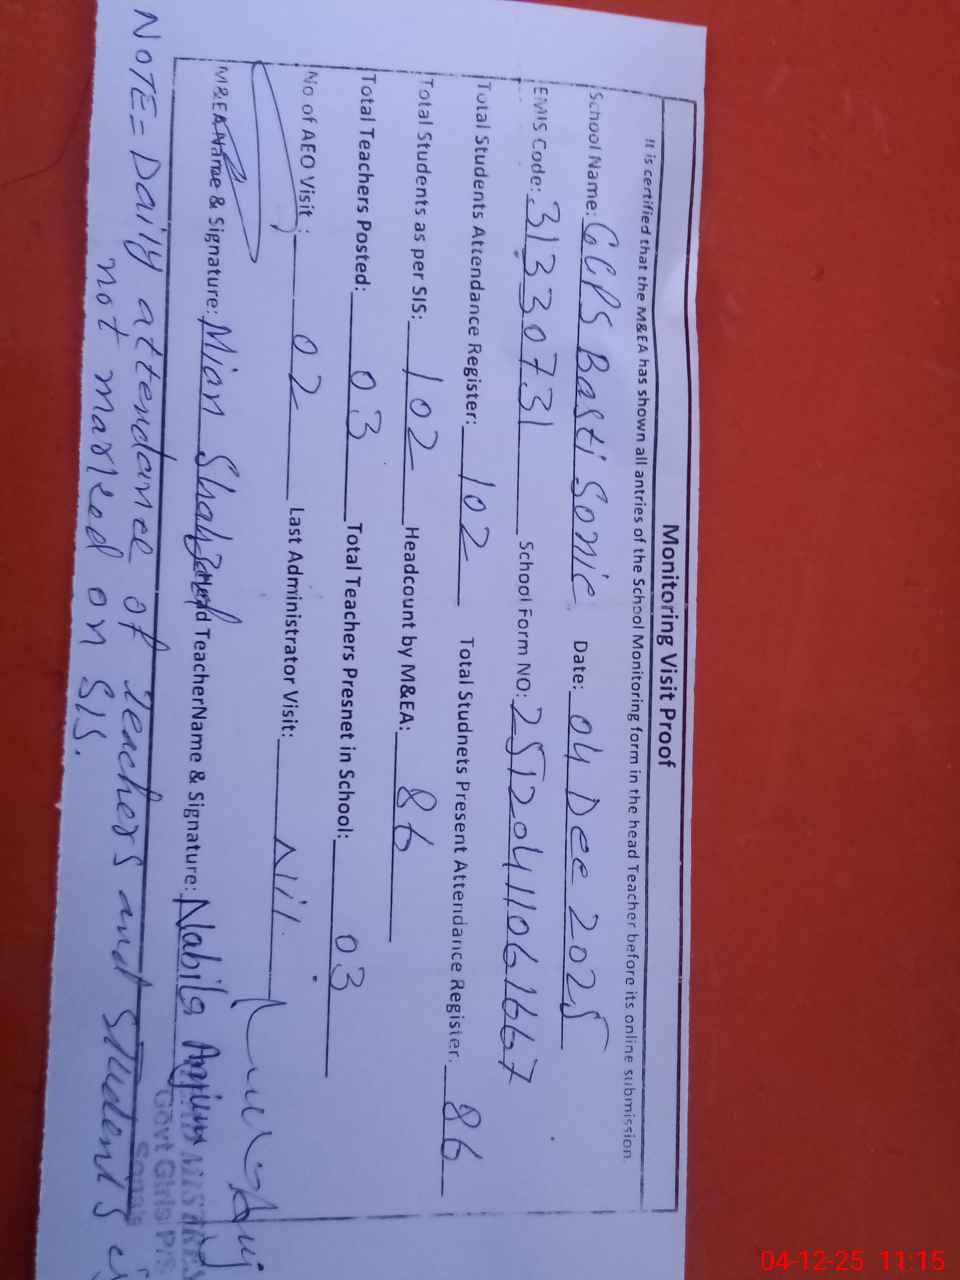 Monitoring Visit Proof
It is certified that the M&EA has shown all antries of the School Monitoring form in the head Teacher before its online submission.
School Name: GGPS Basti Sonic Date: 04 Dec 2025
EMIS Code: 31330731 School Form NO: 25120411061667
Total Students Attendance Register: 102 Total Studnets Present Attendance Register: 86
Total Students as per SIS: 102 Headcount by M&EA: 86
Total Teachers Posted: 03 Total Teachers Presnet in School: 03
No of AEO Visit: 02 Last Administrator Visit: Nil
M&EA Name & Signature: Mian Shahzad Head TeacherName & Signature: Nabila Anjum
Govt Girls P/S
NOTE= Daily attendance of teachers and students is
not marked on SIS.
04-12-25 11:15